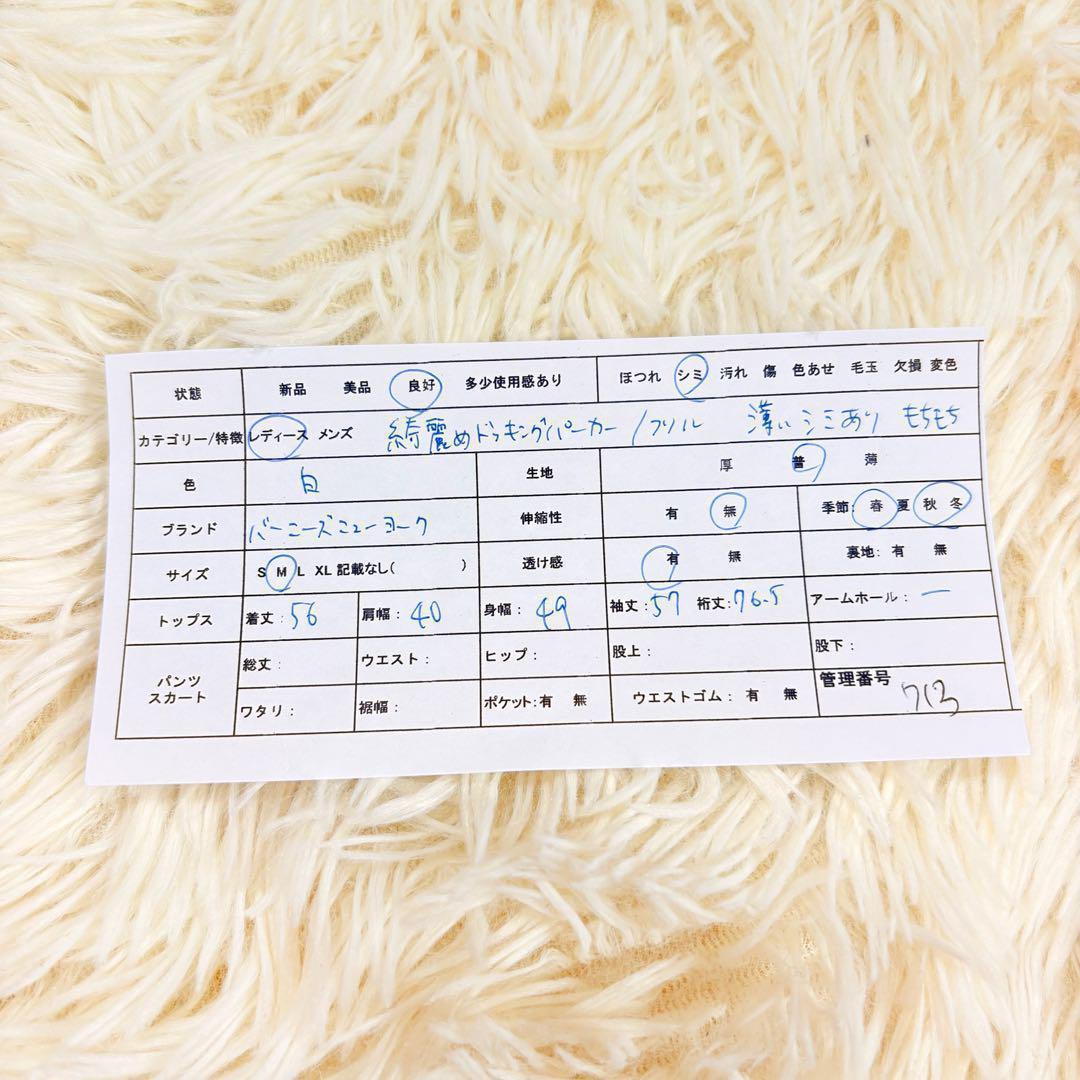 状態 新品 美品 良好 多少使用感あり ほつれ シミ 汚れ 傷 色あせ 毛玉 欠損 変色
カテゴリー/特徴 レディース メンズ 綺麗めドッキングパーカー/フリル 薄いシミあり もちもち
色 白 生地 厚 普 薄
ブランド バーニーズニューヨーク 伸縮性 有 無 季節: 春 夏 秋 冬
サイズ S M L XL 記載なし( ) 透け感 有 無 裏地: 有 無
トップス 着丈: 56 肩幅: 40 身幅: 49 袖丈: 57 裄丈: 76.5 アームホール: ー
パンツ スカート 総丈: ウエスト: ヒップ: 股上: 股下:
ワタリ: 裾幅: ポケット: 有 無 ウエストゴム: 有 無 管理番号 713